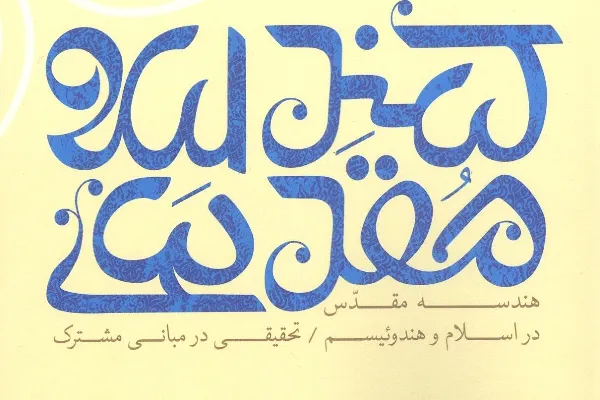 مُقدس
هندسـه مقـدّس
در اسـلام و هندوئیسـم / تحقیقـی در مبانی مشترک